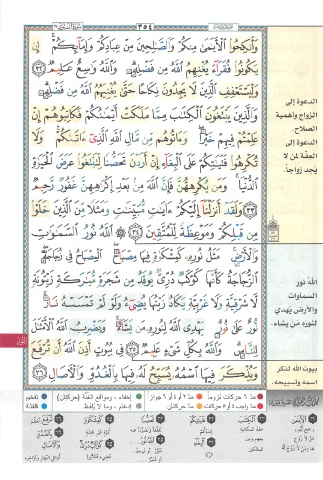 ٣٥٤
وَأَنكِحُوا۟ ٱلْأَيَـٰمَىٰ مِنكُمْ وَٱلصَّـٰلِحِينَ مِنْ عِبَادِكُمْ وَإِمَآئِكُمْ إِن
يَكُونُوا۟ فُقَرَآءَ يُغْنِهِمُ ٱللَّهُ مِن فَضْلِهِۦ وَٱللَّهُ وَٰسِعٌ عَلِيمٌ ٣٢
وَلْيَسْتَعْفِفِ ٱلَّذِينَ لَا يَجِدُونَ نِكَاحًا حَتَّىٰ يُغْنِيَهُمُ ٱللَّهُ مِن فَضْلِهِۦ
وَٱلَّذِينَ يَبْتَغُونَ ٱلْكِتَـٰبَ مِمَّا مَلَكَتْ أَيْمَـٰنُكُمْ فَكَاتِبُوهُمْ إِنْ
عَلِمْتُمْ فِيهِمْ خَيْرًا وَءَاتُوهُم مِّن مَّالِ ٱللَّهِ ٱلَّذِىٓ ءَاتَىٰكُمْ وَلَا
تُكْرِهُوا۟ فَتَيَـٰتِكُمْ عَلَى ٱلْبِغَآءِ إِنْ أَرَدْنَ تَحَصُّنًا لِّتَبْتَغُوا۟ عَرَضَ ٱلْحَيَوٰةِ
ٱلدُّنْيَا وَمَن يُكْرِههُّنَّ فَإِنَّ ٱللَّهَ مِنۢ بَعْدِ إِكْرَٰهِهِنَّ غَفُورٌ رَّحِيمٌ
٣٣ وَلَقَدْ أَنزَلْنَآ إِلَيْكُمْ ءَايَـٰتٍ مُّبَيِّنَـٰتٍ وَمَثَلًا مِّنَ ٱلَّذِينَ خَلَوْا۟
مِن قَبْلِكُمْ وَمَوْعِظَةً لِّلْمُتَّقِينَ ٣٤ ٱللَّهُ نُورُ ٱلسَّمَـٰوَٰتِ
وَٱلْأَرْضِ مَثَلُ نُورِهِۦ كَمِشْكَوٰةٍ فِيهَا مِصْبَاحٌ ٱلْمِصْبَاحُ فِى زُجَاجَةٍ
ٱلزُّجَاجَةُ كَأَنَّهَا كَوْكَبٌ دُرِّىٌّ يُوقَدُ مِن شَجَرَةٍ مُّبَـٰرَكَةٍ زَيْتُونَةٍ
لَّا شَرْقِيَّةٍ وَلَا غَرْبِيَّةٍ يَكَادُ زَيْتُهَا يُضِىٓءُ وَلَوْ لَمْ تَمْسَسْهُ نَارٌ
نُّورٌ عَلَىٰ نُورٍ يَهْدِى ٱللَّهُ لِنُورِهِۦ مَن يَشَآءُ وَيَضْرِبُ ٱللَّهُ ٱلْأَمْثَـٰلَ
لِلنَّاسِ وَٱللَّهُ بِكُلِّ شَىْءٍ عَلِيمٌ ٣٥ فِى بُيُوتٍ أَذِنَ ٱللَّهُ أَن تُرْفَعَ
وَيُذْكَرَ فِيهَا ٱسْمُهُۥ يُسَبِّحُ لَهُۥ فِيهَا بِٱلْغُدُوِّ وَٱلْـَٔاصَالِ ٣٦
الدعوة إلى
الزواج وأهمية
الصلاح.
والدعوة إلى
العفّة لمن لا
يجد زواجاً.
الله نور
السماوات
والأرض يهدي
لنوره من يشاء.
بيوت الله لذكر
اسمه وتسبيحه.